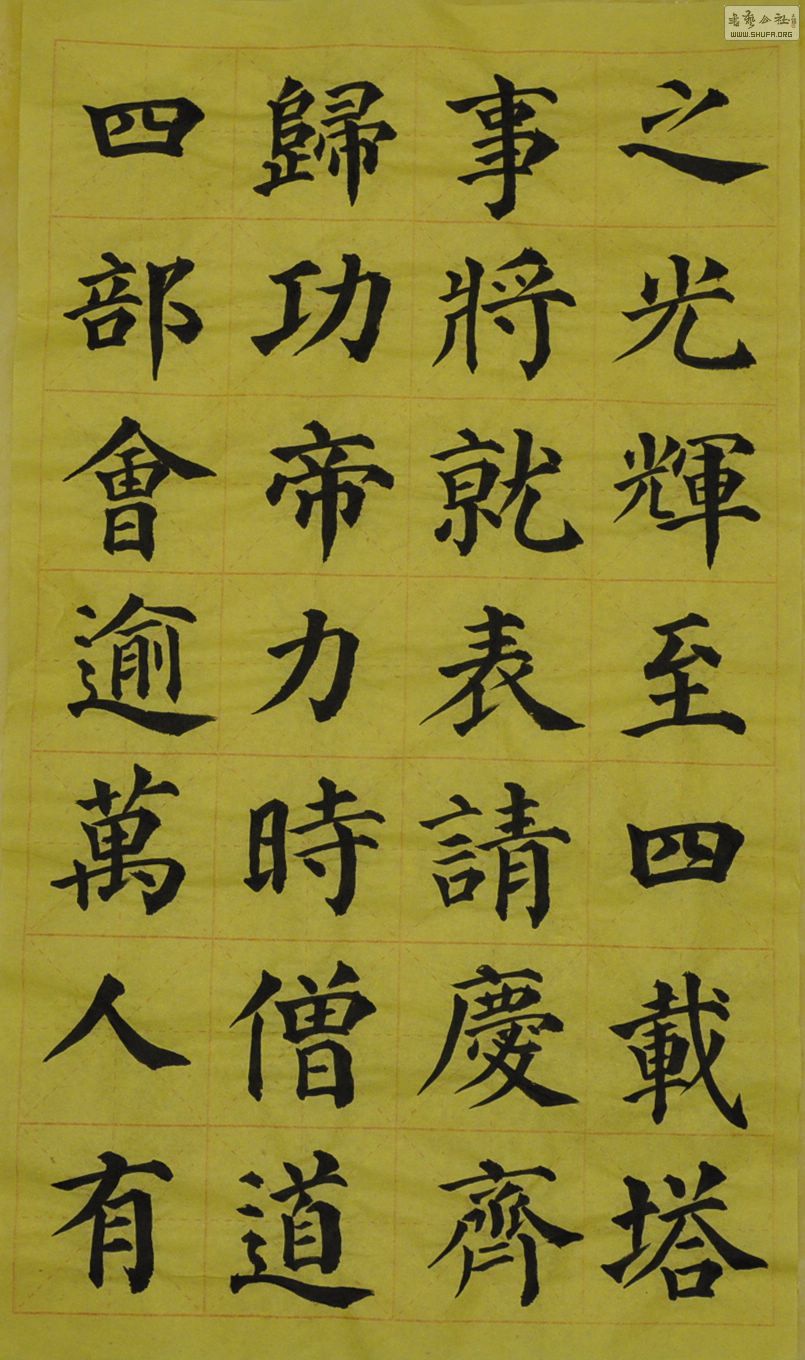 之光輝至四載塔
事將就表請慶齊
歸功帝力時僧道
四部會逾萬人有
WWW.SHUFA.ORG